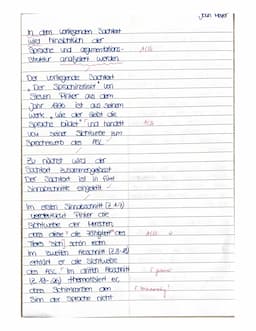 Jean Meyer
In dem vorliegenden Sachtext
wird hinsichtlich der
Sprache und argumentations-
struktur analysiert werden
Der vorliegende Sachtext
„Der Sprachinstinkt" von
Steven Pinker aus dem
Jahr 1996 ist aus seinem
Werk „Wie der Geist die
Sprache bildet" und handelt
von seiner Sichtweise zum
Spracherwerb des
Zu nächst wird der
Sachtext zusammengefasst
Der Sachtext ist in fünf
Sinnabschnitte eingeteilt
Im ersten Sinnabschnitt
verdeutlicht Pinker die
Sichtweise der Menschen,
dass diese die Fähigkeit des
sich schön reden
Im zweiten Abschnitt
erklärt er die Sichtweise
des Im dritten Abschnitt
thematisiert er,
dass
Sinn der Sprache nicht